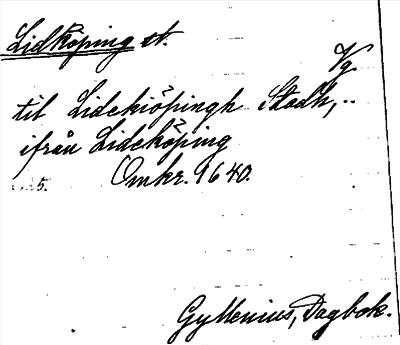 Lidköping st.
Vg
til Lidekiöpingh Stadh, ..
ifrån Lideköping
Omkr. 1640.
Gyllenius, Dagbok.